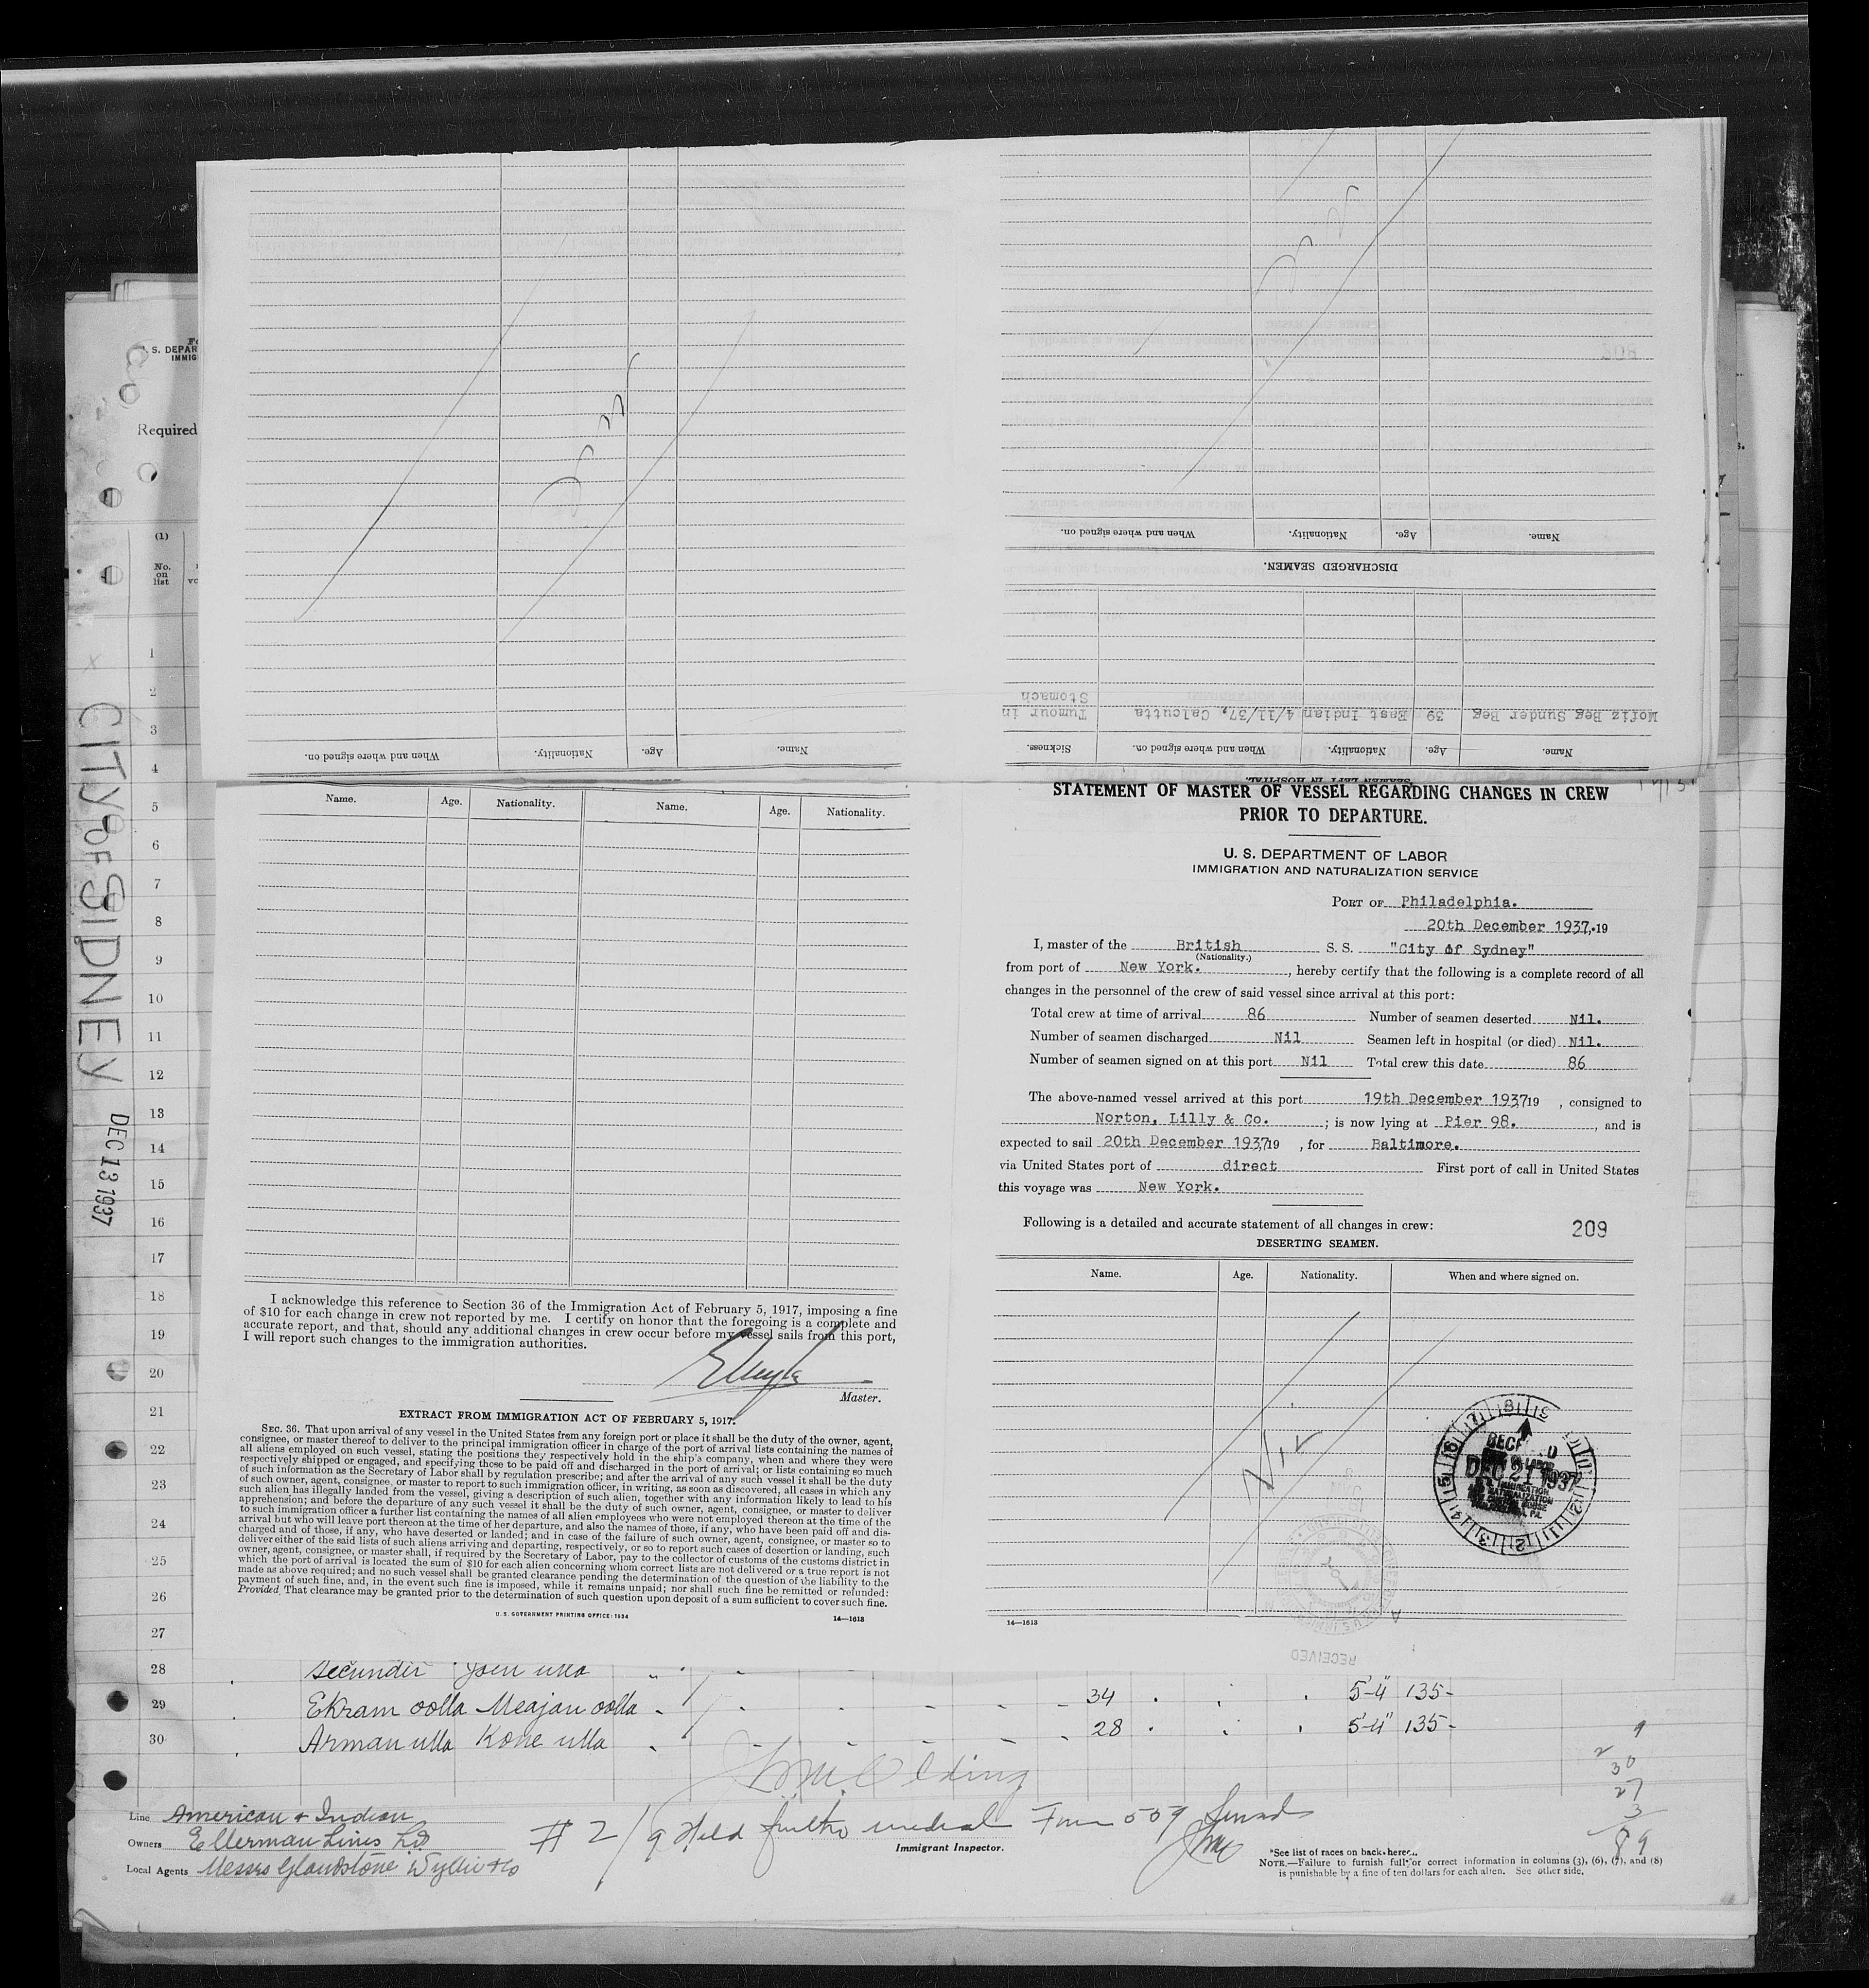 When and where signed on.
Nationality.
Age.
Name.
When and where signed on.
Nationality.
Age.
Name.
DISCHARGED SEAMEN.
Moriz Beg Sunder Beg 39 East Indian 4/11/37, Calcutta Tumour in
Stomach
Name. Age. Nationality. When and where signed on. Sickness.
SEAMEN LEFT IN HOSPITAL.
U. S. DEPAR
IMMIG
Required
(1)
No.
on
list
1
2
3
4
5
6
7
8
9
10
11
12
13
14
15
16
17
18
19
20
21
22
23
24
25
26
27
28
29
30
CITY OF SIDNEY
DEC 13 1937
Name. Age. Nationality. Name. Age. Nationality.
I acknowledge this reference to Section 36 of the Immigration Act of February 5, 1917, imposing a fine
of $10 for each change in crew not reported by me. I certify on honor that the foregoing is a complete and
accurate report, and that, should any additional changes in crew occur before my vessel sails from this port,
I will report such changes to the immigration authorities.
Master.
EXTRACT FROM IMMIGRATION ACT OF FEBRUARY 5, 1917.
SEC. 36. That upon arrival of any vessel in the United States from any foreign port or place it shall be the duty of the owner, agent,
consignee, or master thereof to deliver to the principal immigration officer in charge of the port of arrival lists containing the names of
all aliens employed on such vessel, stating the positions they respectively hold in the ship's company, when and where they were
respectively shipped or engaged, and specifying those to be paid off and discharged in the port of arrival; or lists containing so much
of such information as the Secretary of Labor shall by regulation prescribe; and after the arrival of any such vessel it shall be the duty
of such owner, agent, consignee, or master to report to such immigration officer, in writing, as soon as discovered, all cases in which any
such alien has illegally landed from the vessel, giving a description of such alien, together with any information likely to lead to his
apprehension; and before the departure of any such vessel it shall be the duty of such owner, agent, consignee, or master to deliver
to such immigration officer a further list containing the names of all alien employees who were not employed thereon at the time of the
arrival but who will leave port thereon at the time of her departure, and also the names of those, if any, who have been paid off and dis-
charged and of those, if any, who have deserted or landed; and in case of the failure of such owner, agent, consignee, or master so to
deliver either of the said lists of such aliens arriving and departing, respectively, or so to report such cases of desertion or landing, such
owner, agent, consignee, or master shall, if required by the Secretary of Labor, pay to the collector of customs of the customs district in
which the port of arrival is located the sum of $10 for each alien concerning whom correct lists are not delivered or a true report is not
made as above required; and no such vessel shall be granted clearance pending the determination of the question of the liability to the
payment of such fine, and, in the event such fine is imposed, while it remains unpaid; nor shall such fine be remitted or refunded:
Provided, That clearance may be granted prior to the determination of such question upon deposit of a sum sufficient to cover such fine.
U. S. GOVERNMENT PRINTING OFFICE: 1934 14—1613
STATEMENT OF MASTER OF VESSEL REGARDING CHANGES IN CREW
PRIOR TO DEPARTURE.
U. S. DEPARTMENT OF LABOR
IMMIGRATION AND NATURALIZATION SERVICE
PORT OF Philadelphia.
20th December 1937, 19
I, master of the British S. S. "City of Sydney"
(Nationality.)
from port of New York. , hereby certify that the following is a complete record of all
changes in the personnel of the crew of said vessel since arrival at this port:
Total crew at time of arrival 86 Number of seamen deserted Nil.
Number of seamen discharged Nil Seamen left in hospital (or died) Nil.
Number of seamen signed on at this port Nil Total crew this date 86
The above-named vessel arrived at this port 19th December 1937 19 , consigned to
Norton, Lilly & Co. ; is now lying at Pier 98. , and is
expected to sail 20th December 1937 19 , for Baltimore.
via United States port of direct First port of call in United States
this voyage was New York.
Following is a detailed and accurate statement of all changes in crew: 209
DESERTING SEAMEN.
Name. Age. Nationality. When and where signed on.
Nil
DEC 21 1937
14—1613
RECEIVED
Secundir
Ekram oolla Meajan oolla 34 5'-4" 135-
Arman ulla Kone ulla 28 5'-4" 135-
9
2
30
27
3
89
Line American & Indian
Owners Ellerman Lines Ld
Local Agents Messrs Glandstone Wyllie & Co
# 2/9 Held further medical Form 509
Immigrant Inspector.
*See list of races on back hereof.
NOTE.—Failure to furnish full or correct information in columns (3), (6), (7), and (8)
is punishable by a fine of ten dollars for each alien. See other side.